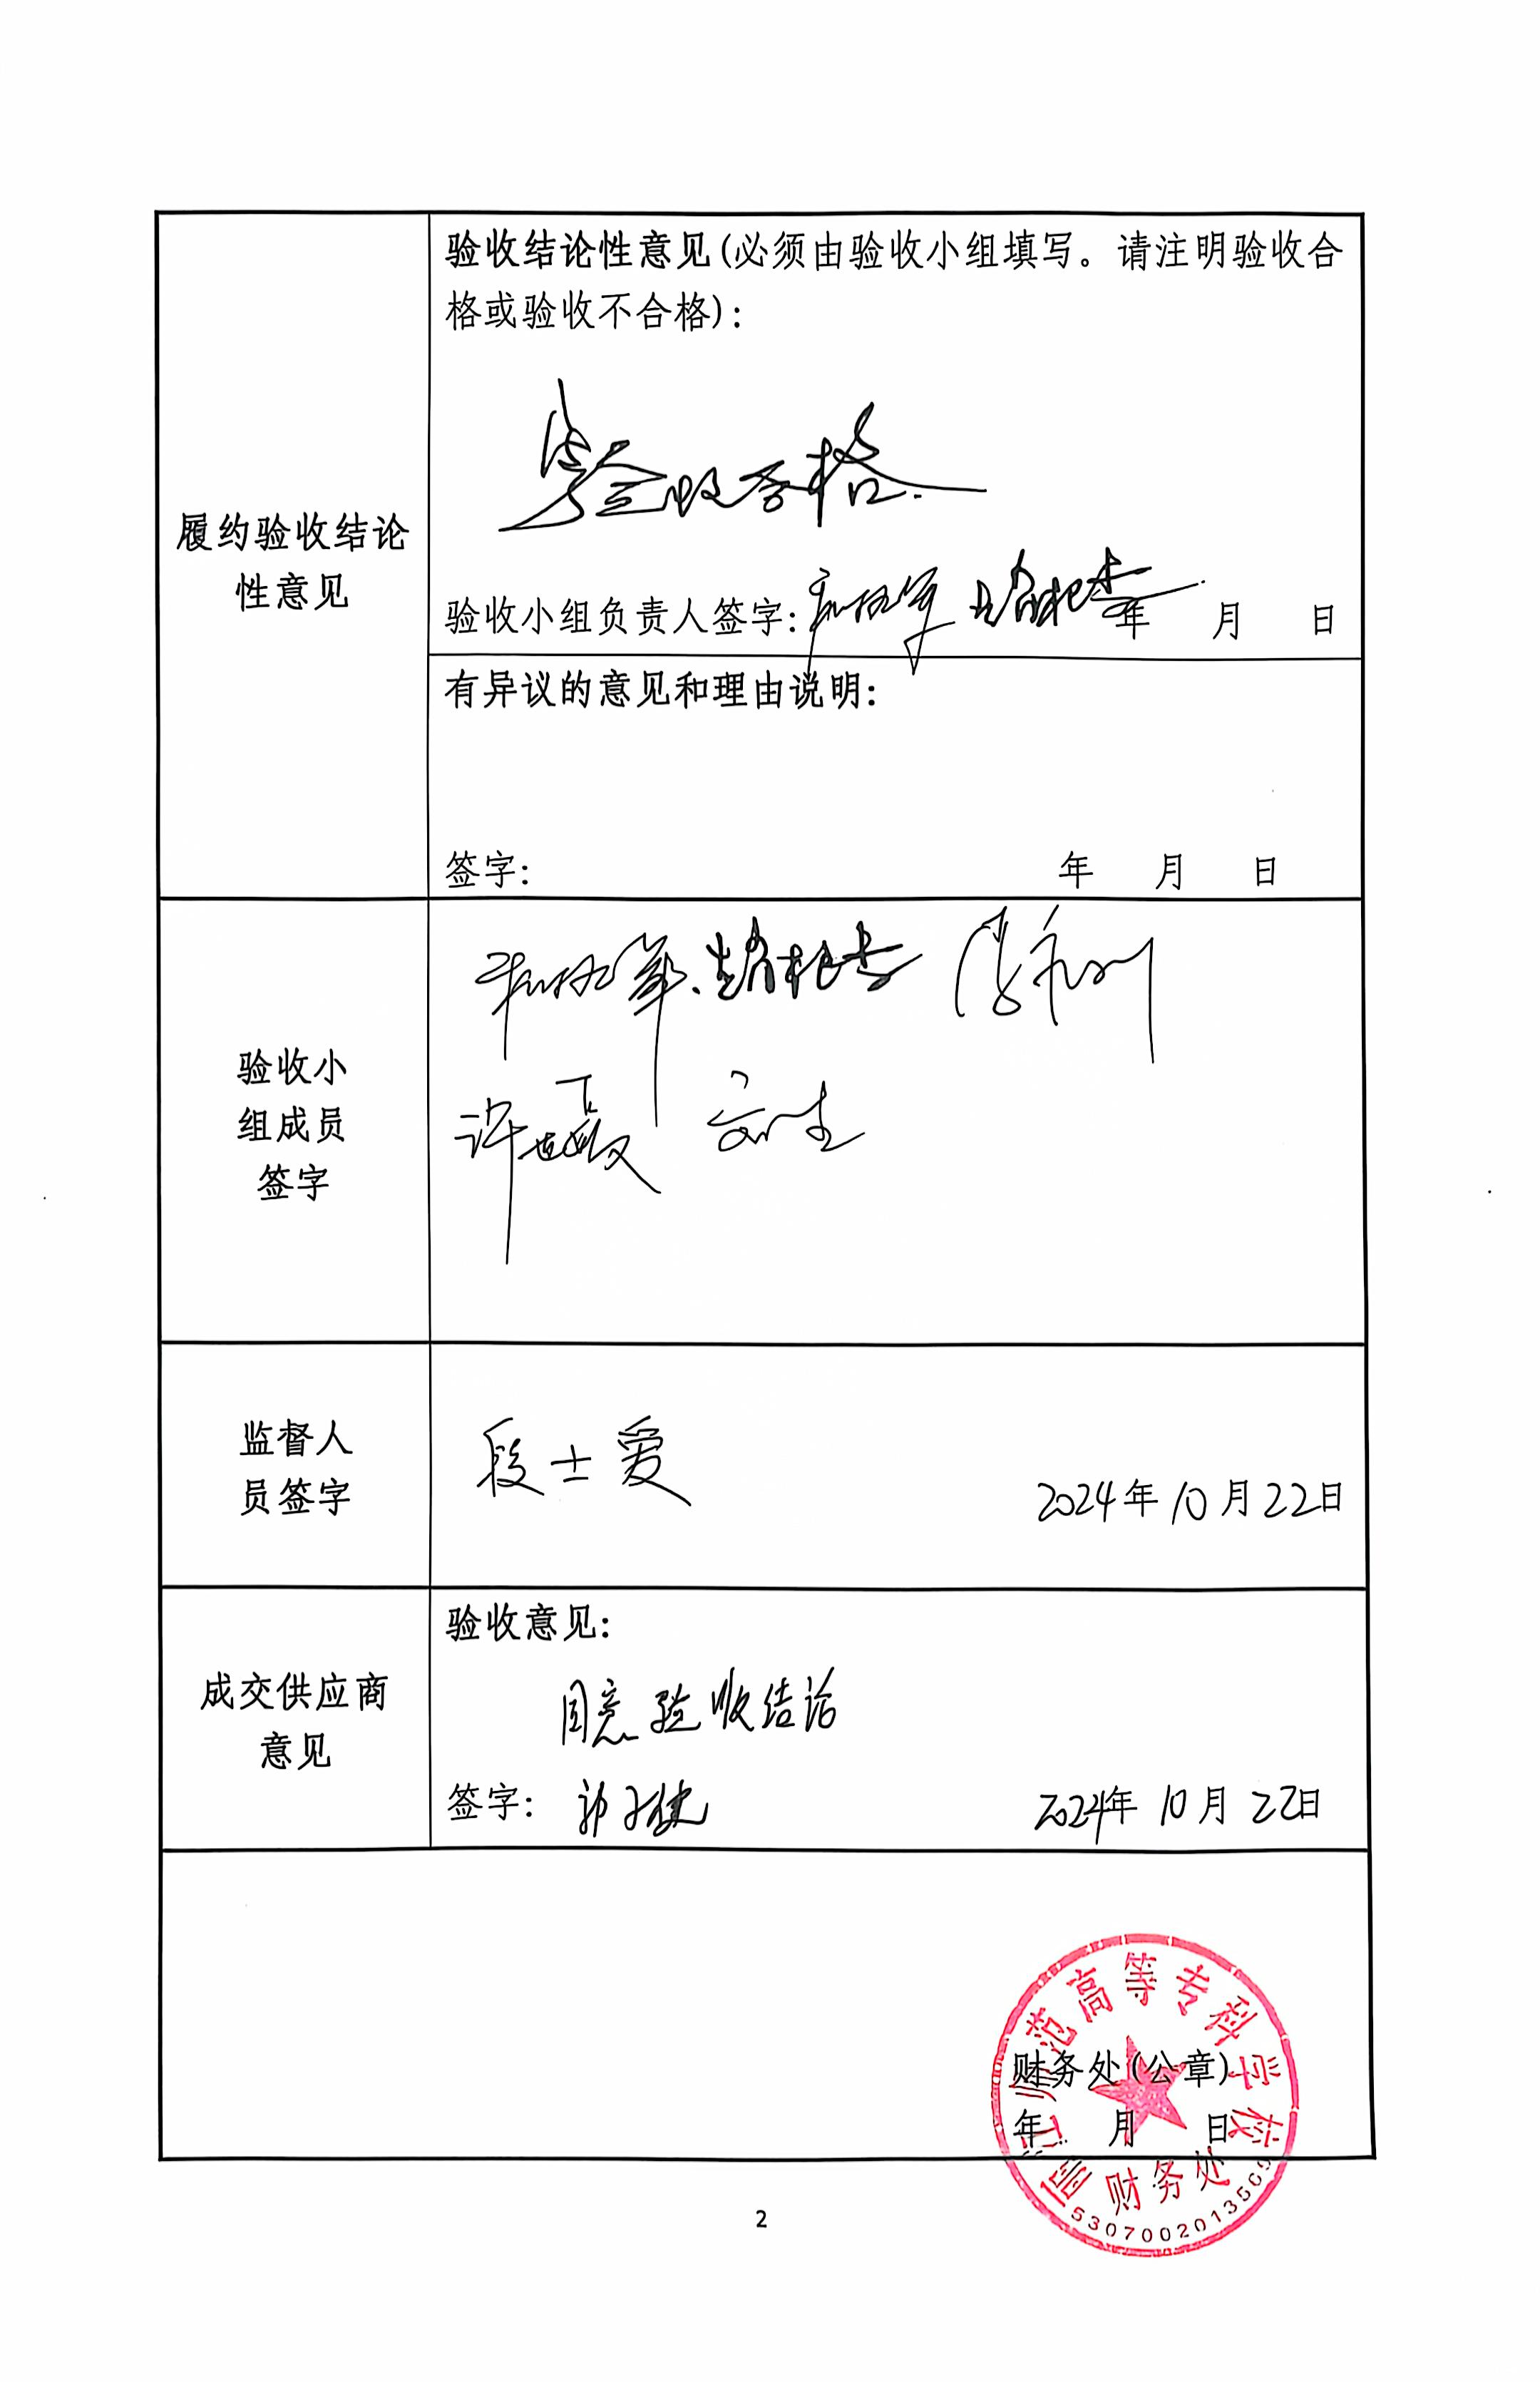 验收结论性意见(必须由验收小组填写。请注明验收合
格或验收不合格)：
验收合格.
履约验收结论
性意见
验收小组负责人签字： 年 月 日
有异议的意见和理由说明：
签字： 年 月 日
验收小
组成员
签字
许
监督人
员签字
段士爱
2024年10月22日
验收意见：
成交供应商
意见
同意验收结论
签字：
2024年10月22日
师范高等专科学校
财务处(公章)
年 月 日
财务处
2